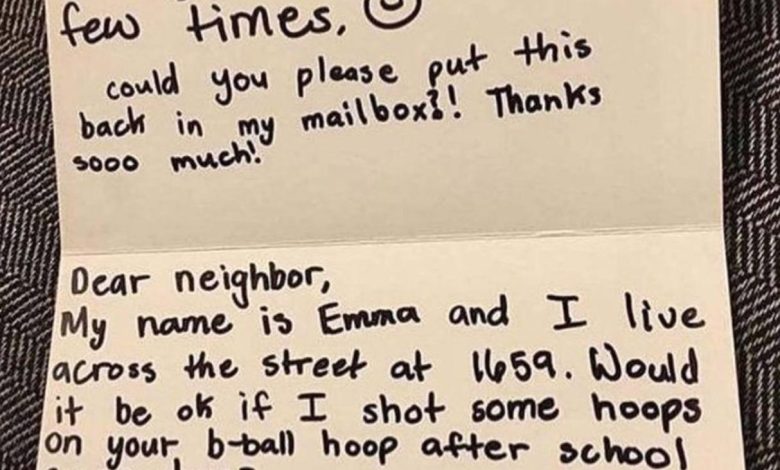 few times. ☺
could you please put this
back in my mailbox?! Thanks
sooo much!
Dear neighbor,
My name is Emma and I live
across the street at 1659. Would
it be ok if I shot some hoops
on your b-ball hoop after school